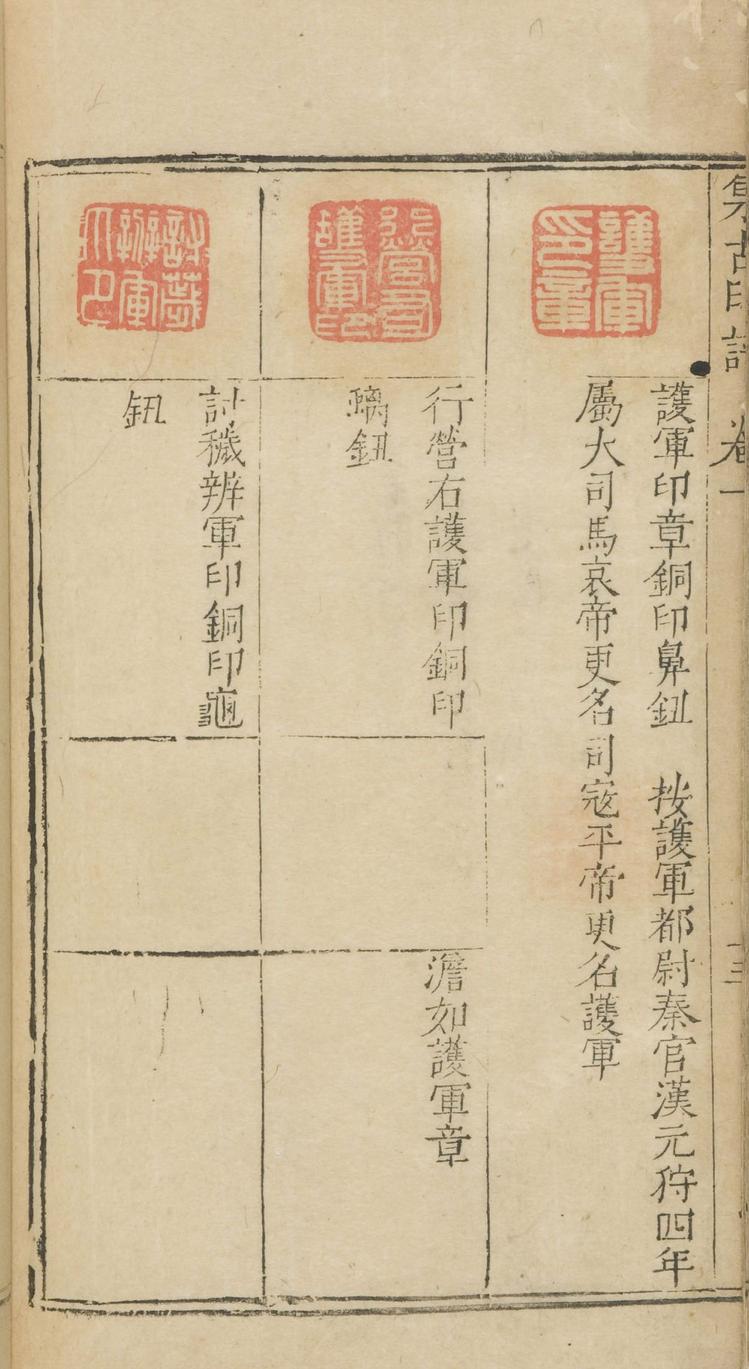 集古印譜 卷一
護軍印章
護軍印章銅印鼻鈕 按護軍都尉秦官漢元狩四年
屬大司馬哀帝更名司寇平帝更名護軍
行營右護軍印
行營右護軍印銅印
螭鈕
澹如護軍章
討薉辨軍印
討穢辨軍印銅印龜
鈕